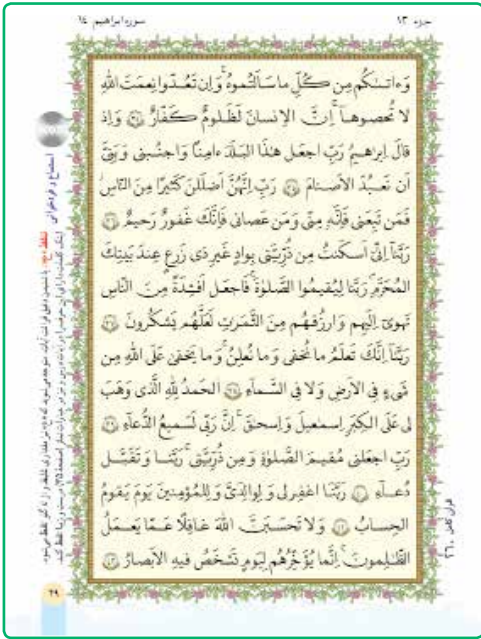 جزء ۱۳
سوره ابراهیم ۱۴
وَءاتىٰكُم مِن كُلِّ ما سَاَلتُموهُ ۚ وَاِن تَعُدّوا نِعمَتَ اللهِ
لا تُحصوها ۗ اِنَّ الاِنسانَ لَظَلومٌ كَفّارٌ ۳۴ وَاِذ
قالَ اِبراهيمُ رَبِّ اجعَل هٰذَا البَلَدَ ءامِنًا وَاجنُبنى وَبَنِىَّ
اَن نَعبُدَ الاَصنامَ ۳۵ رَبِّ اِنَّهُنَّ اَضلَلنَ كَثيرًا مِنَ النّاسِ ۖ
فَمَن تَبِعَنى فَاِنَّه مِنّى وَمَن عَصانى فَاِنَّكَ غَفورٌ رَحيمٌ ۳۶
رَبَّنا اِنّى اَسكَنتُ مِن ذُرِّيَّتى بِوادٍ غَيرِ ذى زَرعٍ عِندَ بَيتِكَ
المُحَرَّمِ رَبَّنا لِيُقيمُوا الصَّلوٰةَ فَاجعَل اَفئِدَةً مِنَ النّاسِ
تَهوى اِلَيهِم وَارزُقهُم مِنَ الثَّمَرٰتِ لَعَلَّهُم يَشكُرونَ ۳۷
رَبَّنا اِنَّكَ تَعلَمُ ما نُخفى وَما نُعلِنُ ۗ وَما يَخفىٰ عَلَى اللهِ مِن
شَىءٍ فِى الاَرضِ وَلا فِى السَّماءِ ۳۸ اَلحَمدُ لِلّٰهِ الَّذى وَهَبَ
لى عَلَى الكِبَرِ اِسمٰعيلَ وَاِسحٰقَ ۚ اِنَّ رَبّى لَسَميعُ الدُّعاءِ ۳۹
رَبِّ اجعَلنى مُقيمَ الصَّلوٰةِ وَمِن ذُرِّيَّتى ۚ رَبَّنا وَتَقَبَّل
دُعاءِ ۴۰ رَبَّنَا اغفِرلى وَلِوالِدَىَّ وَلِلمُؤمِنينَ يَومَ يَقومُ
الحِسابُ ۴۱ وَلا تَحسَبَنَّ اللهَ غافِلًا عَمّا يَعمَلُ
الظّٰلِمونَ ۚ اِنَّما يُؤَخِّرُهُم لِيَومٍ تَشخَصُ فيهِ الاَبصارُ ۴۲
قرآن کامل، ۲۶۰
۲۹